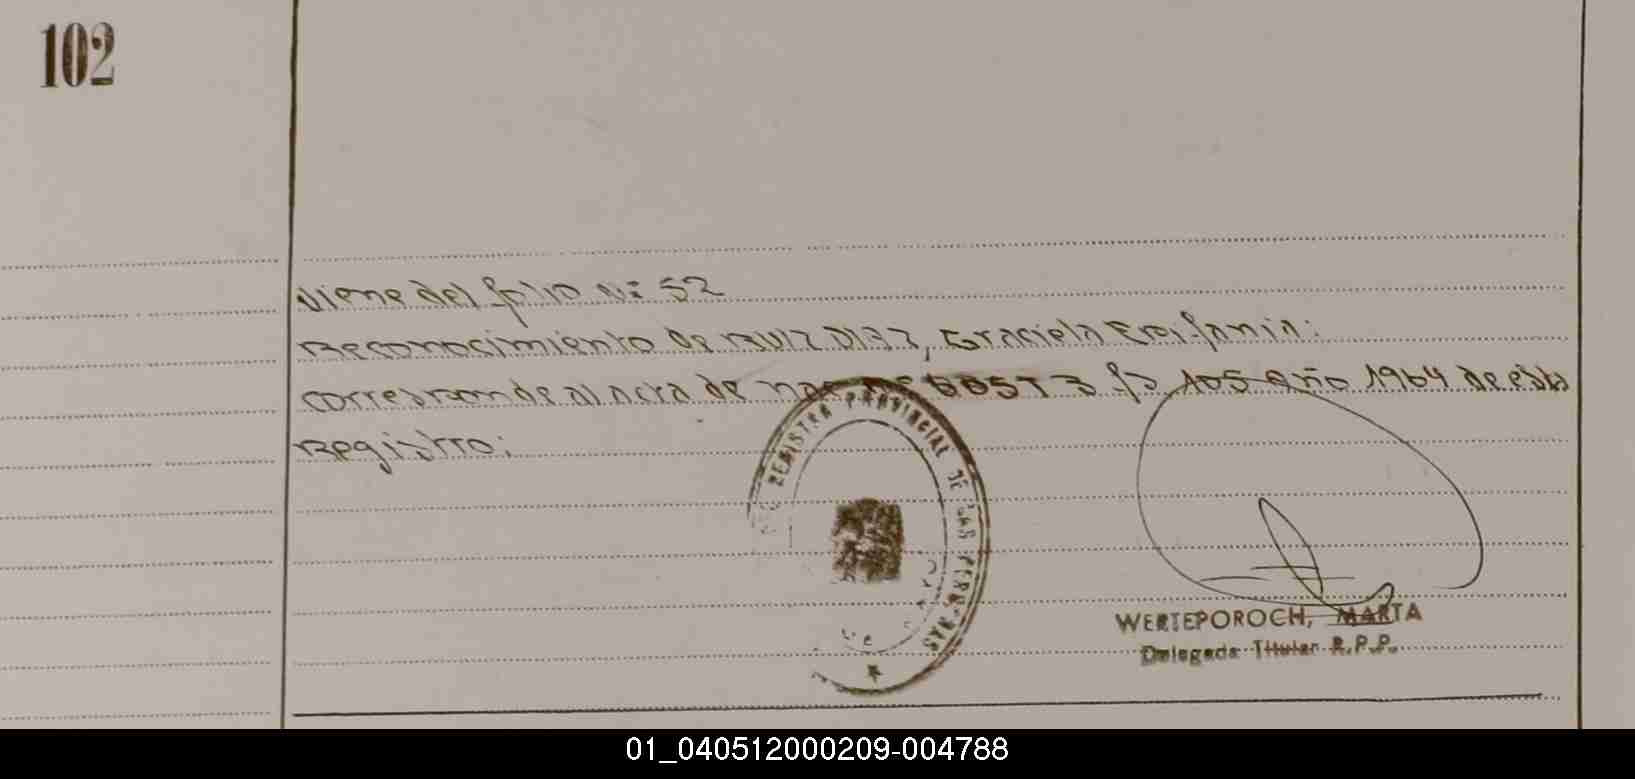 102
Viene del folio Nº 52
Reconocimiento de RUIZ DIAZ, Graciela Epifania:
corresponde al acta de nac Nº T 3 fº 105 año 1964 de este
Registro:
REGISTRO PROVINCIAL DE LAS PERSONAS
WERTEPOROCH, MARTA
Delegada Titular R.P.P.
01_040512000209-004788